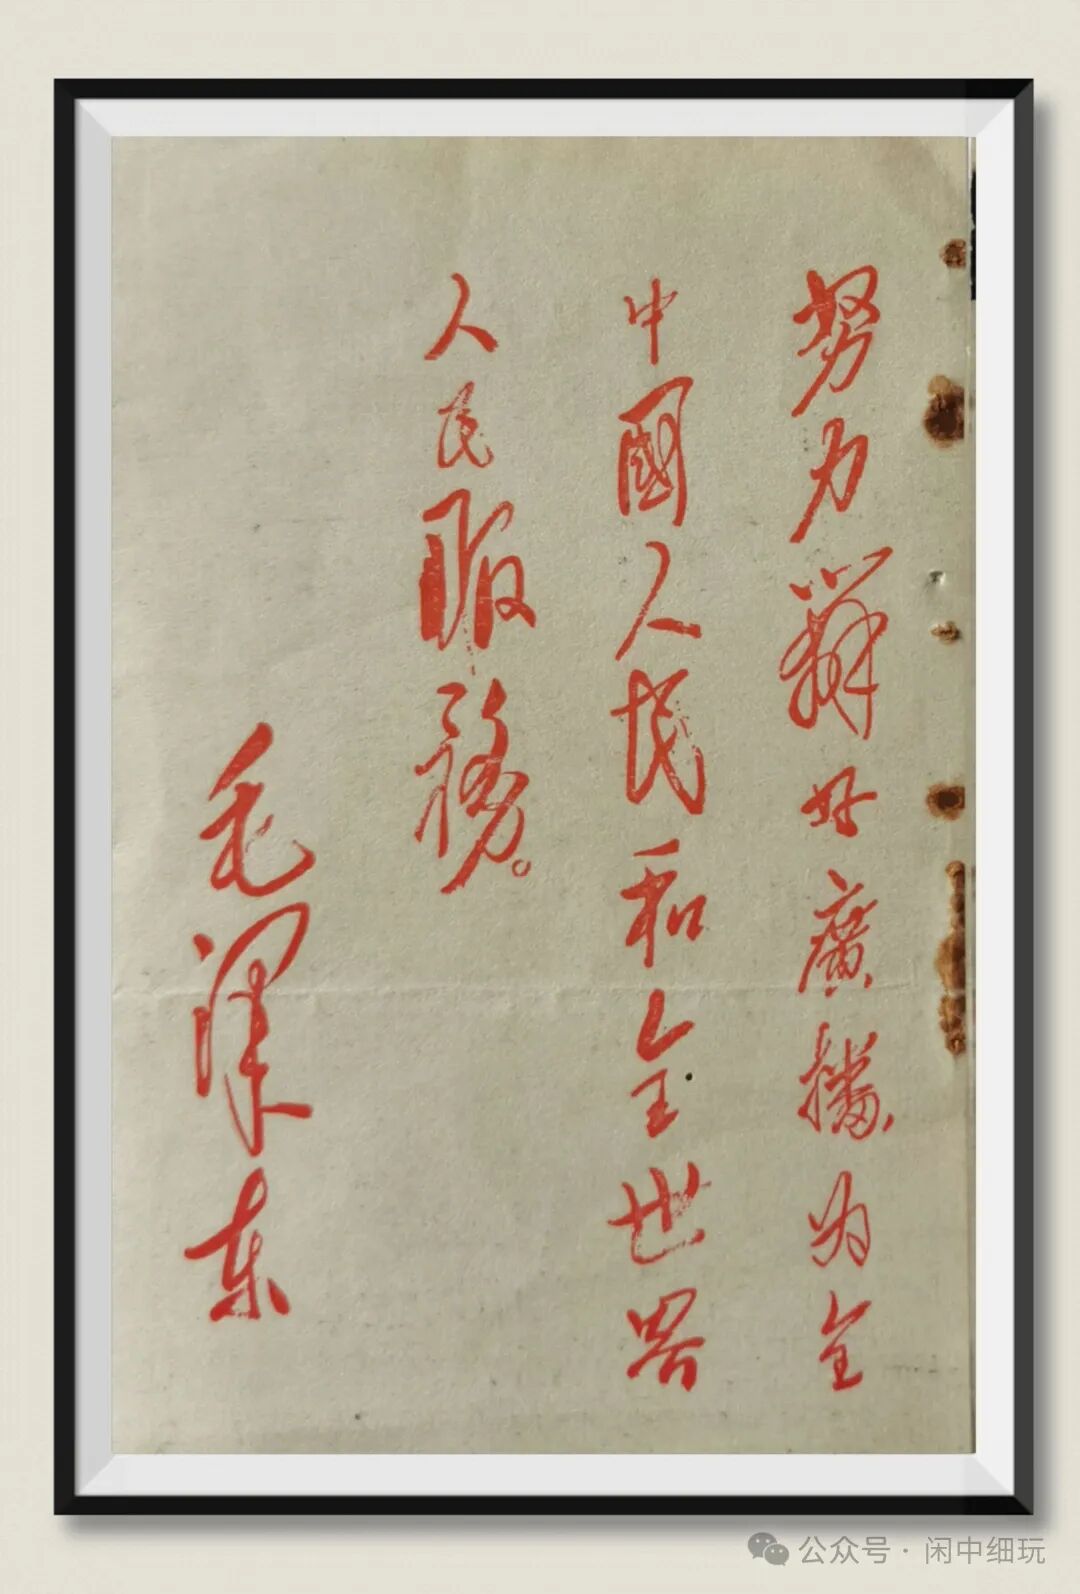 努力辦好廣播为全
中國人民和全世界
人民服務。
毛澤东
公众号·闲中细玩